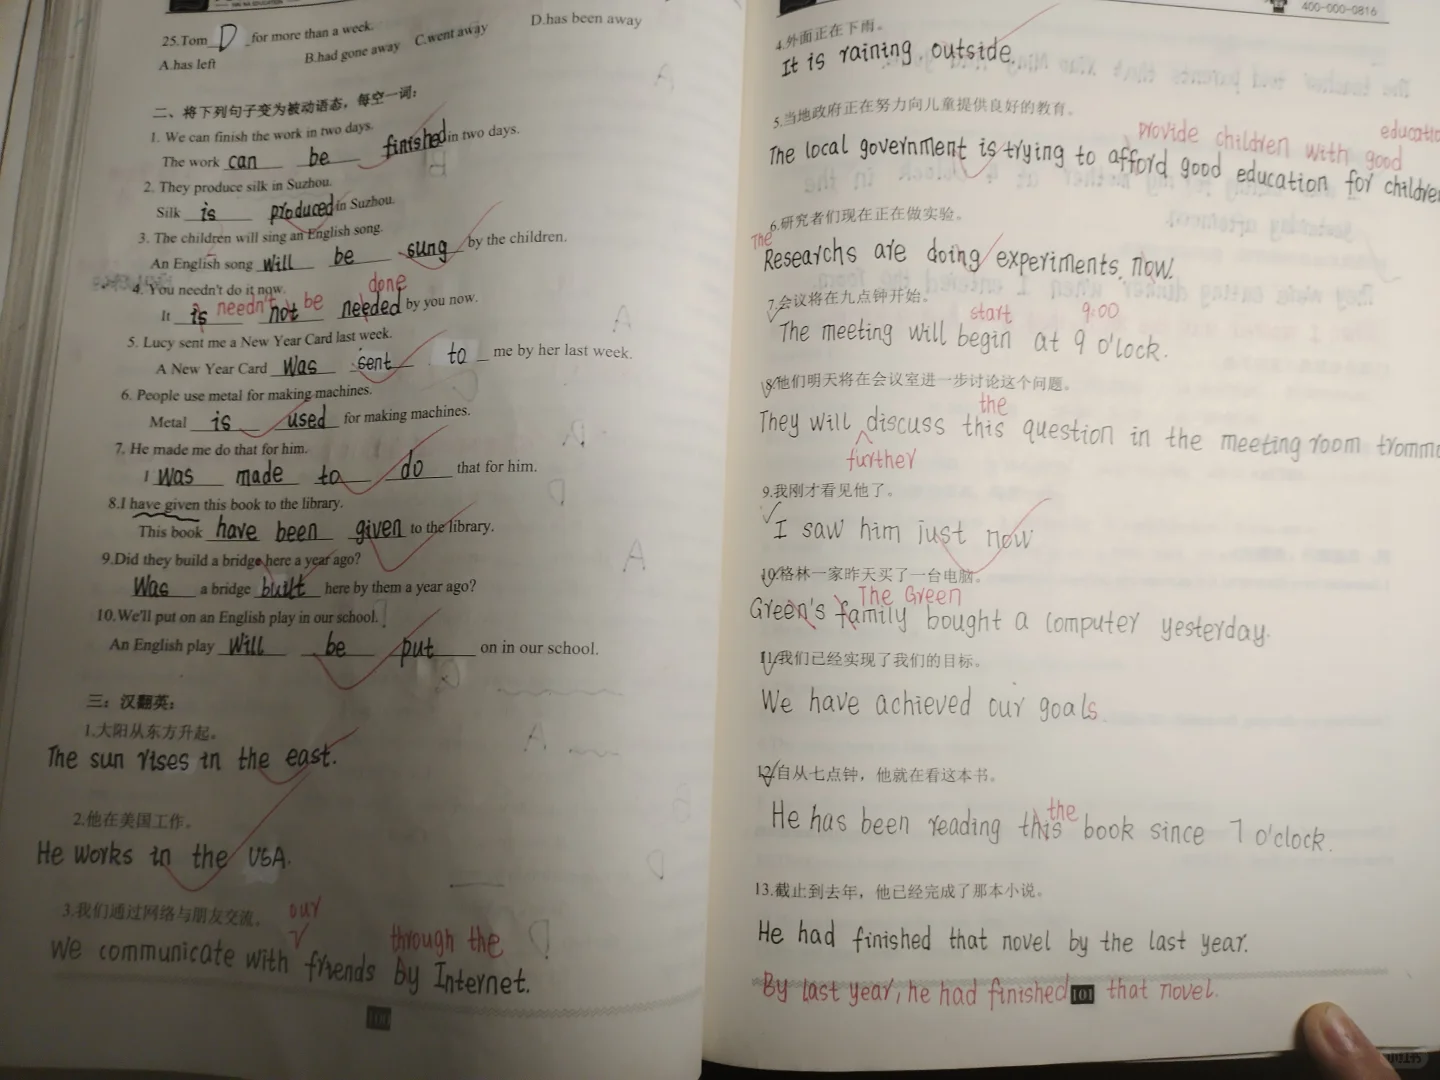 25.Tom D for more than a week.
A.has left B.had gone away C.went away D.has been away
二、将下列句子变为被动语态，每空一词：
1. We can finish the work in two days.
The work can be finished in two days.
2. They produce silk in Suzhou.
Silk is produced in Suzhou.
3. The children will sing an English song.
An English song will be sung by the children.
4. You needn't do it now.
needn't be done
It is not needed by you now.
5. Lucy sent me a New Year Card last week.
A New Year Card Was sent to me by her last week.
6. People use metal for making machines.
Metal is used for making machines.
7. He made me do that for him.
I was made to do that for him.
8.I have given this book to the library.
This book have been given to the library.
9.Did they build a bridge here a year ago?
Was a bridge built here by them a year ago?
10.We'll put on an English play in our school.
An English play will be put on in our school.
三：汉翻英：
1.太阳从东方升起。
The sun rises in the east.
2.他在美国工作。
He works in the USA.
3.我们通过网络与朋友交流。
our through the
We communicate with friends by Internet.
400-000-0816
4.外面正在下雨。
It is raining outside.
5.当地政府正在努力向儿童提供良好的教育。
provide children with good
The local government is trying to afford good education for
6.研究者们现在正在做实验。
The
Researchs are doing experiments now.
7.会议将在九点钟开始。
start 9:00
The meeting will begin at 9 o'lock.
8.他们明天将在会议室进一步讨论这个问题。
the
They will discuss this question in the meeting room
further
9.我刚才看见他了。
I saw him just now
10.格林一家昨天买了一台电脑。
The Green
Green's family bought a computer yesterday.
11.我们已经实现了我们的目标。
We have achieved our goals.
12.自从七点钟，他就在看这本书。
the
He has been reading this book since 7 o'clock.
13.截止到去年，他已经完成了那本小说。
He had finished that novel by the last year.
By last year, he had finished that novel.
101